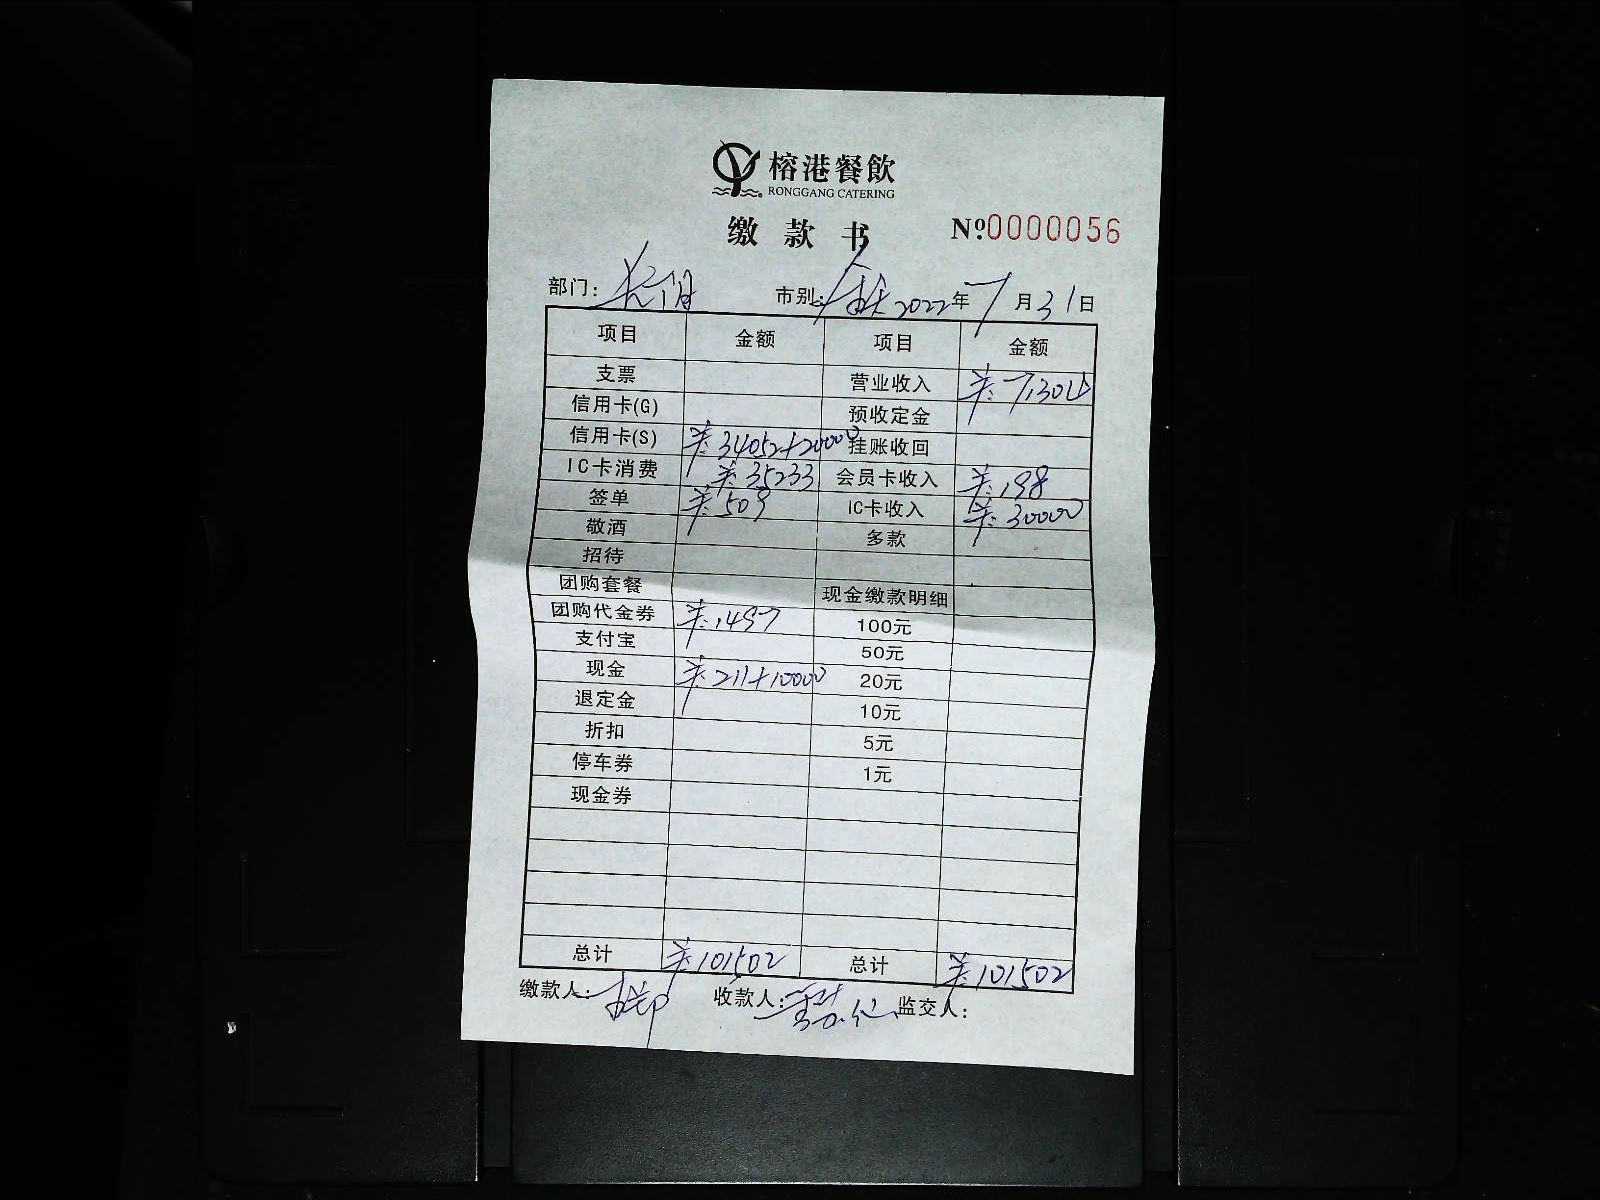 榕港餐飲
RONGGANG CATERING
缴款书 Nº 0000056
部门: 市别: 2022年7月31日
项目 金额 项目 金额
支票 营业收入 ¥:71304
信用卡(G) 预收定金
信用卡(S) ¥:34052+20000 挂账收回
IC卡消费 ¥:35233 会员卡收入 ¥:198
签单 ¥:509 IC卡收入 ¥:30000
敬酒 多款
招待
团购套餐 现金缴款明细
团购代金券 ¥:1497 100元
支付宝 50元
现金 ¥:211+10000 20元
退定金 10元
折扣 5元
停车券 1元
现金券
总计 ¥:101502 总计 ¥:101502
缴款人: 收款人: 监交人: